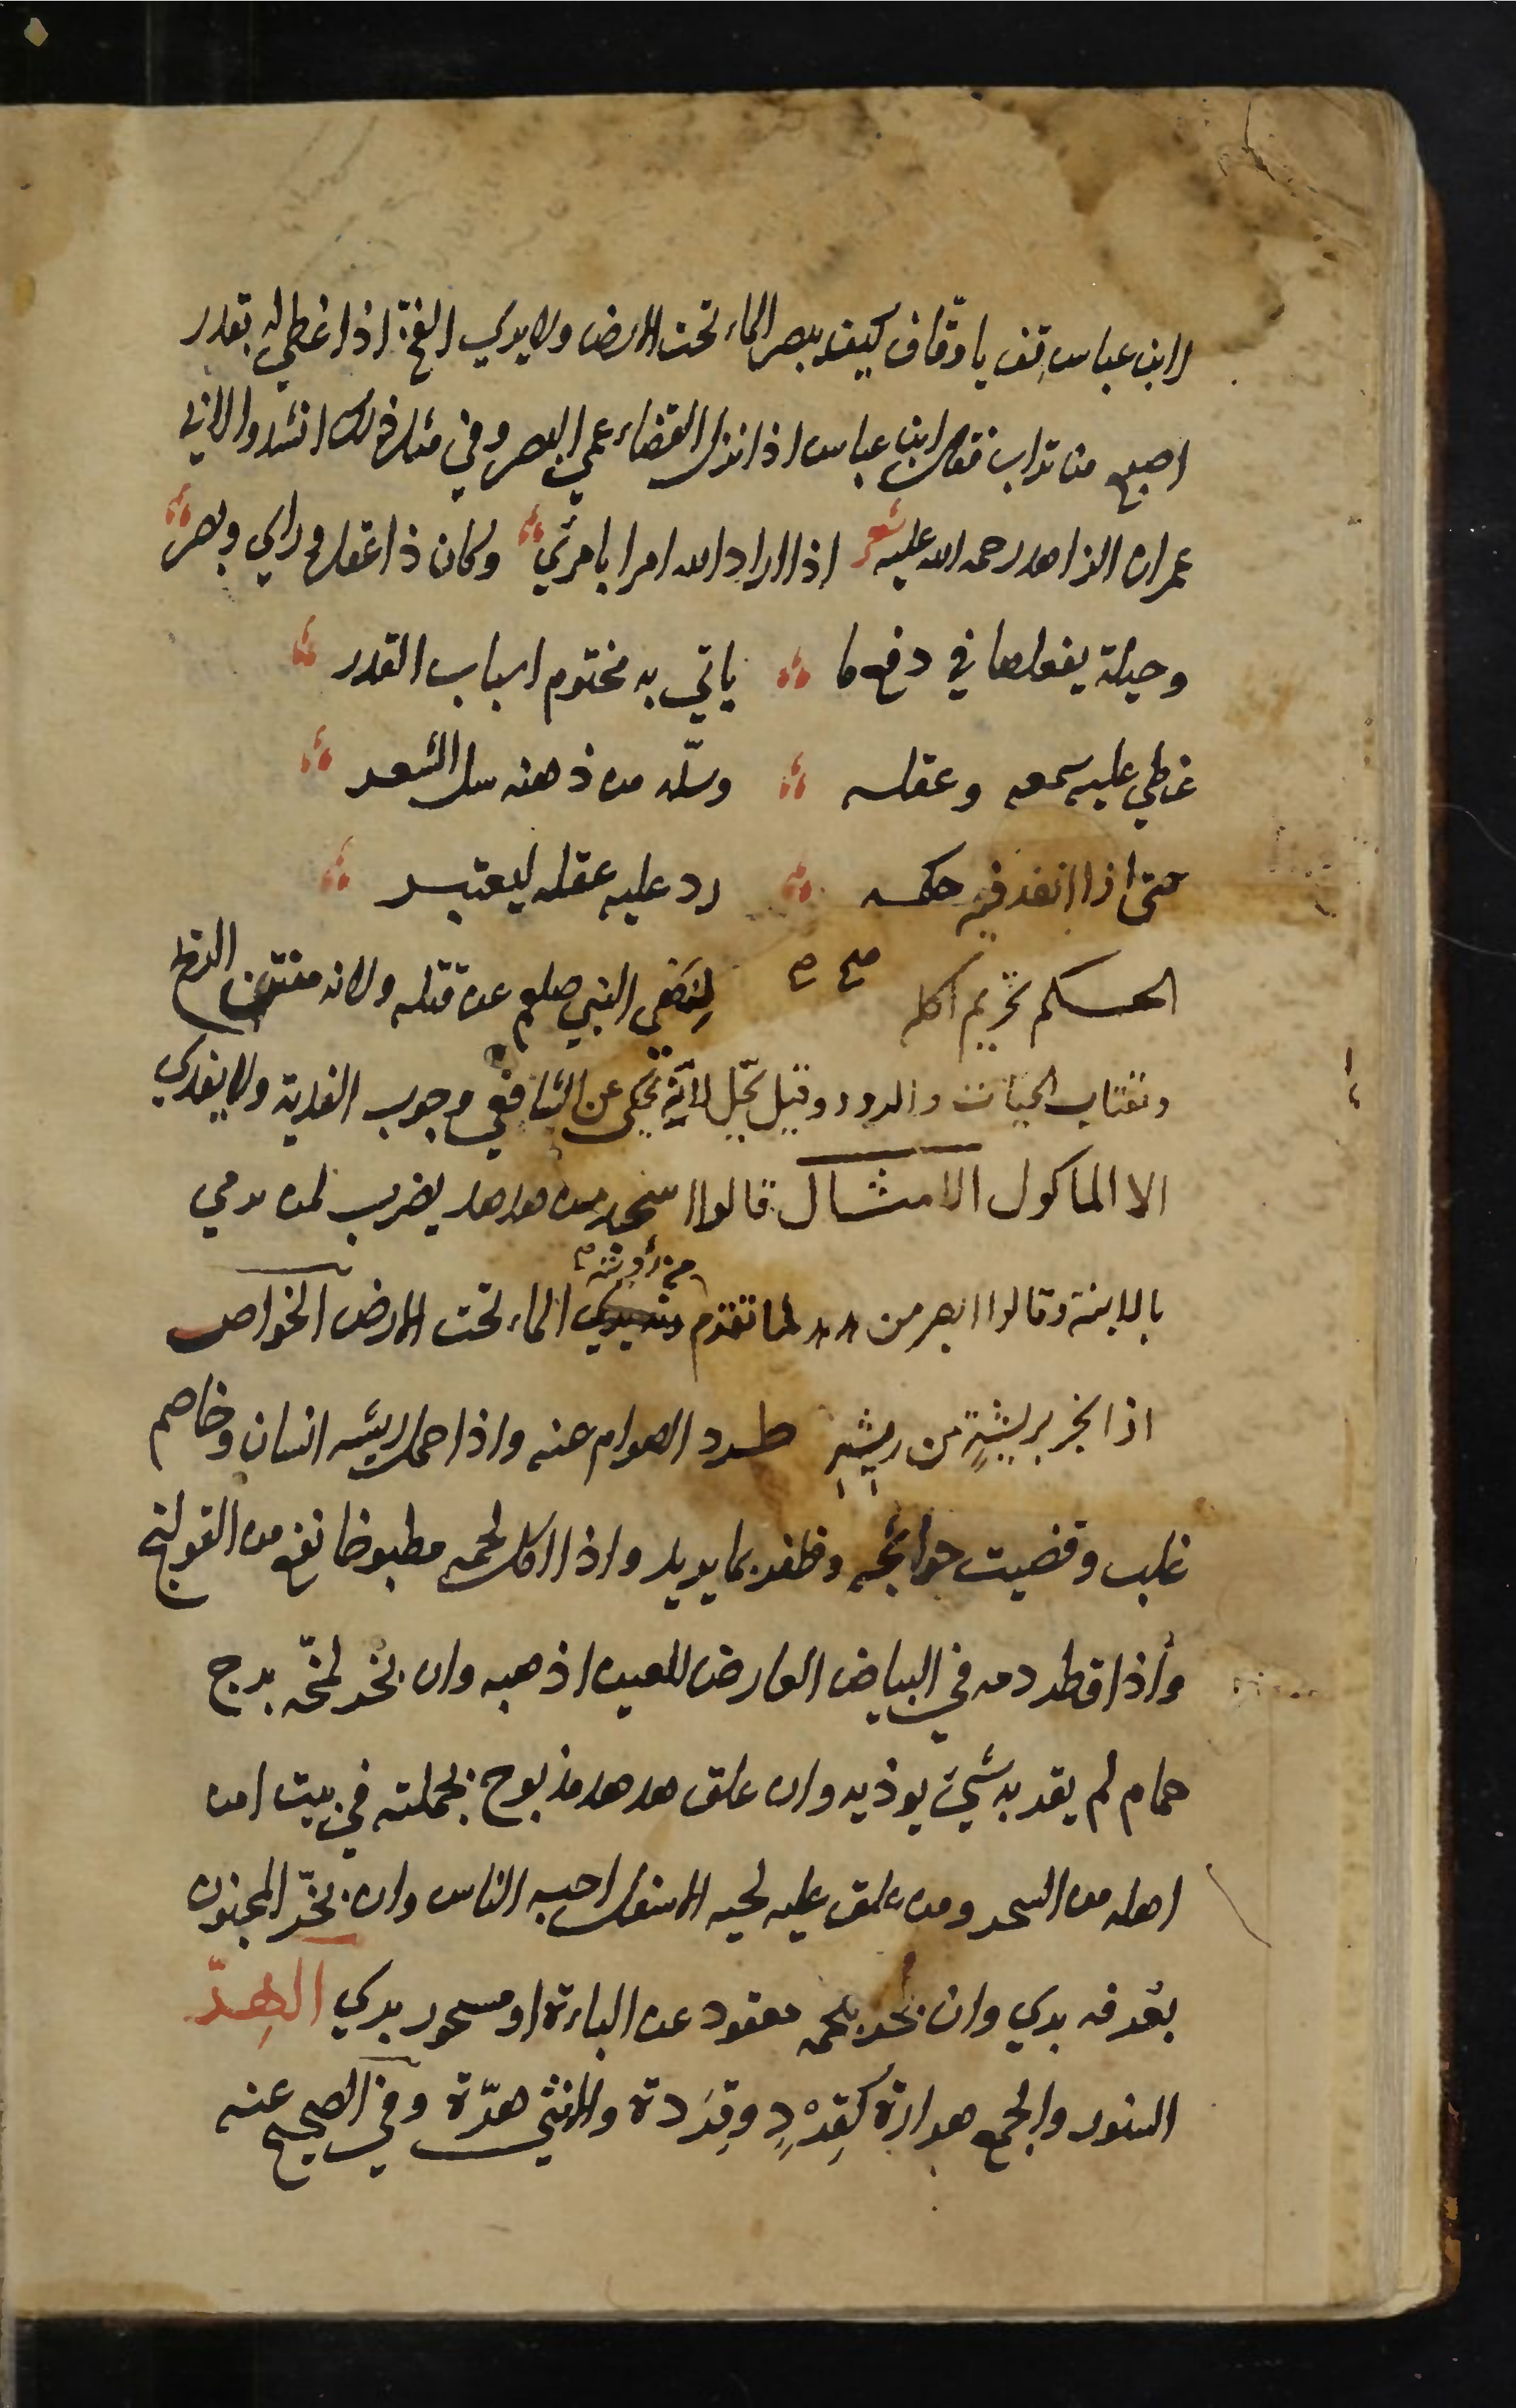 لابن عباس قف يا وقاف كيف يبصر الماء تحت الارض ولا يري الفخ اذا غطي له بقدر
اصبع من تراب فقال ابن عباس اذا نزل القضاء عمي البصر وفي مثل ذلك انشدوا لابي
عمران الزاهد رحمه الله عليه شعر اذا اراد الله امرا بامرئ وكان ذا عقل وراي وبصر
وحيلة يفعلها في دفع ما ياتي به مختوم اسباب القدر
غطي عليه سمعه وعقله وسله من ذهنه سل الشعر
حتى اذا انفذ فيه حكمه رد عليه عقله ليعتبر
الحكم تحريم اكله صح لنهي النبي صلعم عن قتله ولانه منتن الريح
ويقتات الحيات والدود وقيل يحل لانه يحكى عن الشافعي وجوب الفدية ولا يفدي
الا الماكول الامثال قالوا اسجد من هدهد يضرب لمن يرمي
بالابنة وقالوا ابصر من هدهد لما تقدم من رؤيته الماء تحت الارض الخواص
اذا بخر بريشة من ريشه طرد الهوام عنه واذا حمل ريشه انسان وخاصم
غلب وقضيت حوائجه وظفر بما يريد واذا اكل لحمه مطبوخا نفع من القولنج
وأذا قطر دمه في البياض العارض للعين اذهبه وان بخر بمخه برج
حمام لم يقربه شيئ يوذيه وان علق هدهد مذبوح بجملته في بيت امن
اهله من السحر ومن علق عليه لحيه الاسفل احبه الناس وان بخر المجنون
بعرفه بري وان بخر بلحمه معقود عن الباءة او مسحور بري الهِرّ
السنور والجمع هررة كقِرْدٍ وقِرَدة والانثي هرّة وفي الصحيح عنه